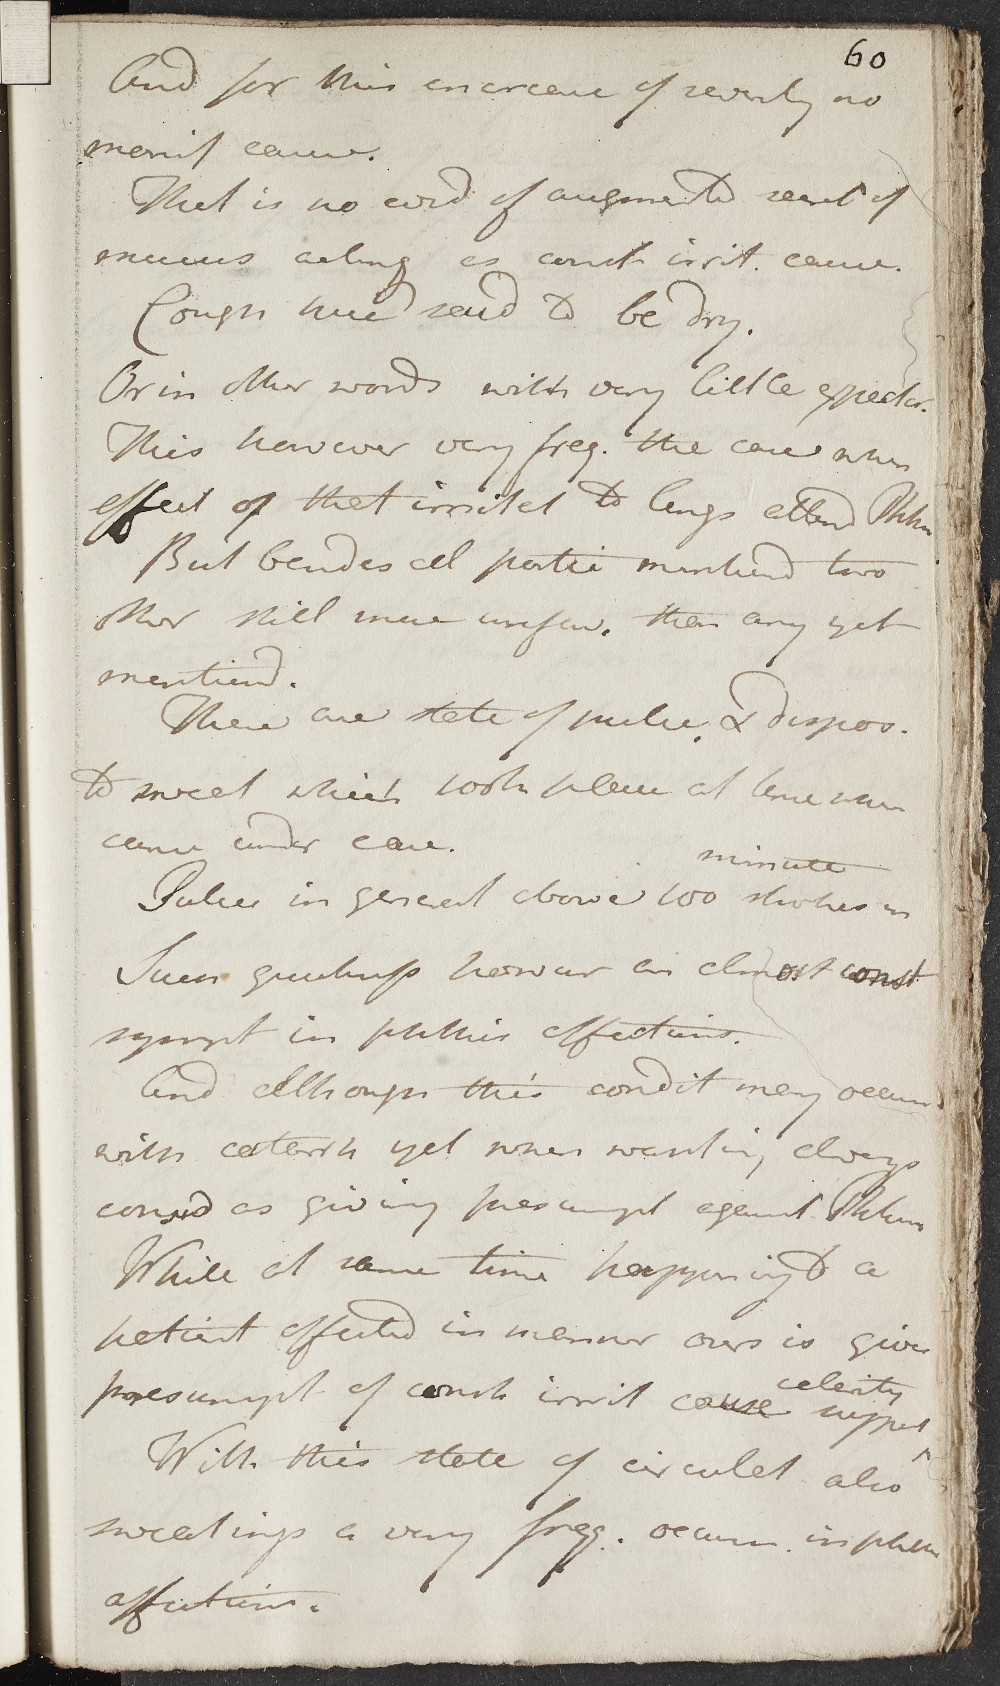 60
And for this encrease of severity no
manif cause.
That is no evid of augmented secret of
mucus acting as const irrit. cause.
Cough hue said to be dry.
Or in other words with very little expector.
This however very freq. the case when
effect of that irritat to lungs attend Phthis
But besides all partic mentiend two
other still more unfav. than any yet
mentiend.
These are state of pulse, & dispos.
to sweat which both place at time when
came under care.
minute
Pulse in general above 100 strokes in
Such quickness howevr an almost const
sympt in phthis affections.
And although this condit may occur
with catarrh yet when wanting always
consid as giving presumpt against Phthis
While at same time happening to a
patient affected in manner ours is gives
presumpt of const irrit cause
celerity
suppt
With this state of circulat also
sweatings a very freq. occurr. in phthis
affections.